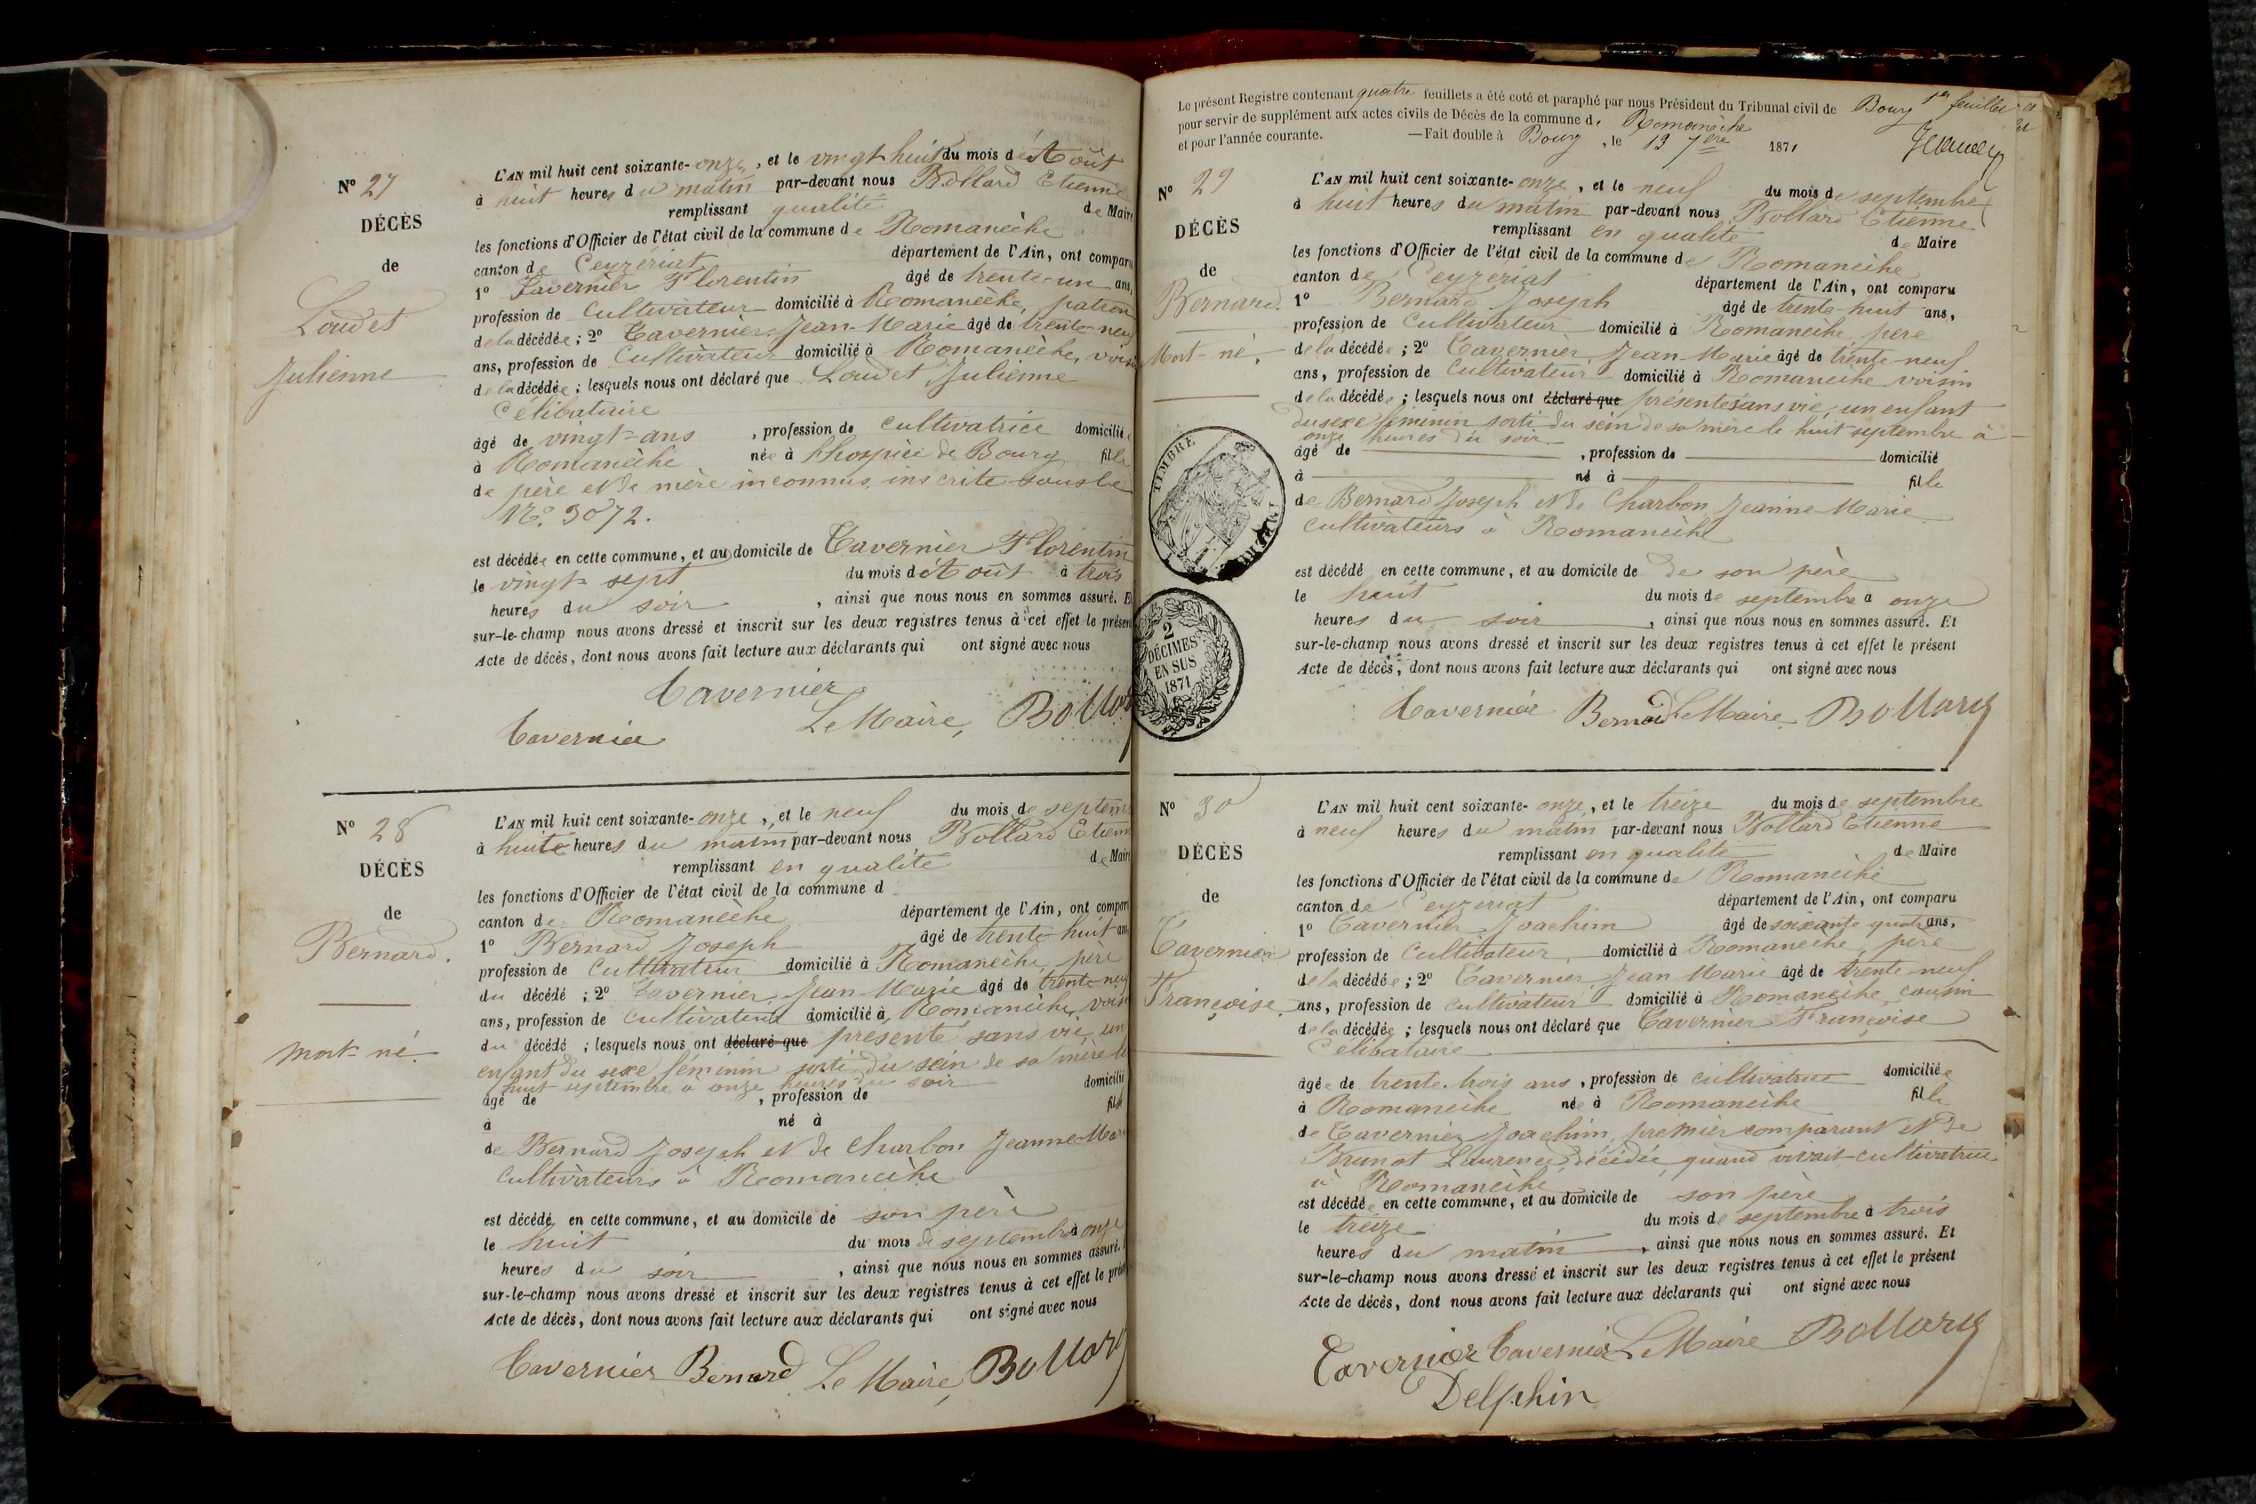 N° 27
DÉCÈS
de
Loudet
Julienne
L'AN mil huit cent soixante-onze, et le vingt huit du mois d'Août
à huit heures du matin par-devant nous Bollard Etienne
remplissant qualité de Maire
les fonctions d'Officier de l'état civil de la commune de Romanèche
canton de Ceyzeriat département de l'Ain, ont comparu
1° Tavernier Florentin âgé de trente-un ans,
profession de Cultivateur domicilié à Romanèche, patron
de la décédée; 2° Tavernier Jean-Marie âgé de trente-neuf
ans, profession de Cultivateur domicilié à Romanèche, voisin
de la décédée; lesquels nous ont déclaré que Loudet Julienne
Célibataire
âgé de vingt-ans, profession de cultivatrice domicilié
à Romanèche née à l'hospice de Bourg fille
de père et de mère inconnus, inscrite sous le
N°. 3072.
est décédée en cette commune, et au domicile de Tavernier Florentin
le vingt-sept du mois d'Août à trois
heures du soir, ainsi que nous nous en sommes assuré. Et
sur-le-champ nous avons dressé et inscrit sur les deux registres tenus à cet effet le présent
Acte de décès, dont nous avons fait lecture aux déclarants qui ont signé avec nous
Tavernier
Tavernier Le Maire, Bollard
N° 28
DÉCÈS
de
Bernard.
Mort-né.
L'AN mil huit cent soixante-onze, et le neuf du mois de septembre
à huit heures du matin par-devant nous Bollard Etienne
remplissant en qualité de Maire
les fonctions d'Officier de l'état civil de la commune d
canton de Romanèche département de l'Ain, ont comparu
1° Bernard Joseph âgé de trente-huit ans
profession de Cultivateur domicilié à Romanèche, père
du décédé; 2° Tavernier Jean-Marie âgé de trente-neuf
ans, profession de Cultivateur domicilié à Romanèche, voisin
du décédé; lesquels nous ont déclaré que présenté sans vie, un
enfant du sexe féminin sorti du sein de sa mère le
huit septembre à onze heures du soir
âgé de, profession de domicilié
à né à fil
de Bernard Joseph et de Charbon Jeanne-Marie
Cultivateurs à Romanèche
est décédé en cette commune, et au domicile de son père
le huit du mois de septembre à onze
heures du soir, ainsi que nous nous en sommes assuré.
sur-le-champ nous avons dressé et inscrit sur les deux registres tenus à cet effet le présent
Acte de décès, dont nous avons fait lecture aux déclarants qui ont signé avec nous
Tavernier Bernard Le Maire, Bollard
Le présent Registre contenant quatre feuillets a été coté et paraphé par nous Président du Tribunal civil de Bourg 1er feuillet
pour servir de supplément aux actes civils de Décès de la commune de Romanèche
et pour l'année courante. —Fait double à Bourg, le 13 7bre 1871
N° 29
DÉCÈS
de
Bernard.
Mort-né.
TIMBRE
2
DÉCIMES
EN SUS
1871
L'AN mil huit cent soixante-onze, et le neuf du mois de septembre
à huit heures du matin par-devant nous Bollard Etienne
remplissant en qualité de Maire
les fonctions d'Officier de l'état civil de la commune de Romanèche
canton de Ceyzeriat département de l'Ain, ont comparu
1° Bernard Joseph âgé de trente-huit ans,
profession de Cultivateur domicilié à Romanèche, père
de la décédée; 2° Tavernier Jean-Marie âgé de trente-neuf
ans, profession de Cultivateur domicilié à Romanèche voisin
de la décédée; lesquels nous ont déclaré que présenté sans vie, un enfant
du sexe féminin sorti du sein de sa mère le huit septembre à
onze heures du soir
âgé de, profession de domicilié
à né à fille
de Bernard Joseph et de Charbon Jeanne Marie
cultivateurs à Romanèche
est décédé en cette commune, et au domicile de de son père
le huit du mois de septembre à onze
heures du soir, ainsi que nous nous en sommes assuré. Et
sur-le-champ nous avons dressé et inscrit sur les deux registres tenus à cet effet le présent
Acte de décès, dont nous avons fait lecture aux déclarants qui ont signé avec nous
Tavernier Bernard Le Maire Bollard
N° 30
DÉCÈS
de
Tavernier
Françoise.
L'AN mil huit cent soixante-onze, et le treize du mois de septembre
à neuf heures du matin par-devant nous Bollard Etienne
remplissant en qualité de Maire
les fonctions d'Officier de l'état civil de la commune de Romanèche
canton de Ceyzeriat département de l'Ain, ont comparu
1° Tavernier Joachim âgé de soixante quatre ans,
profession de Cultivateur domicilié à Romanèche, père
de la décédée; 2° Tavernier Jean Marie âgé de trente-neuf
ans, profession de cultivateur domicilié à Romanèche, cousin
de la décédée; lesquels nous ont déclaré que Tavernier Françoise
Célibataire
âgée de trente-trois ans, profession de cultivatrice domiciliée
à Romanèche née à Romanèche fille
de Tavernier Joachim, premier comparant et de
Brunot Laurence décédée, quand vivait cultivatrice
à Romanèche
est décédée en cette commune, et au domicile de son père
le treize du mois de septembre à trois
heures du matin, ainsi que nous nous en sommes assuré. Et
sur-le-champ nous avons dressé et inscrit sur les deux registres tenus à cet effet le présent
Acte de décès, dont nous avons fait lecture aux déclarants qui ont signé avec nous
Tavernier Tavernier Le Maire Bollard
Delphin